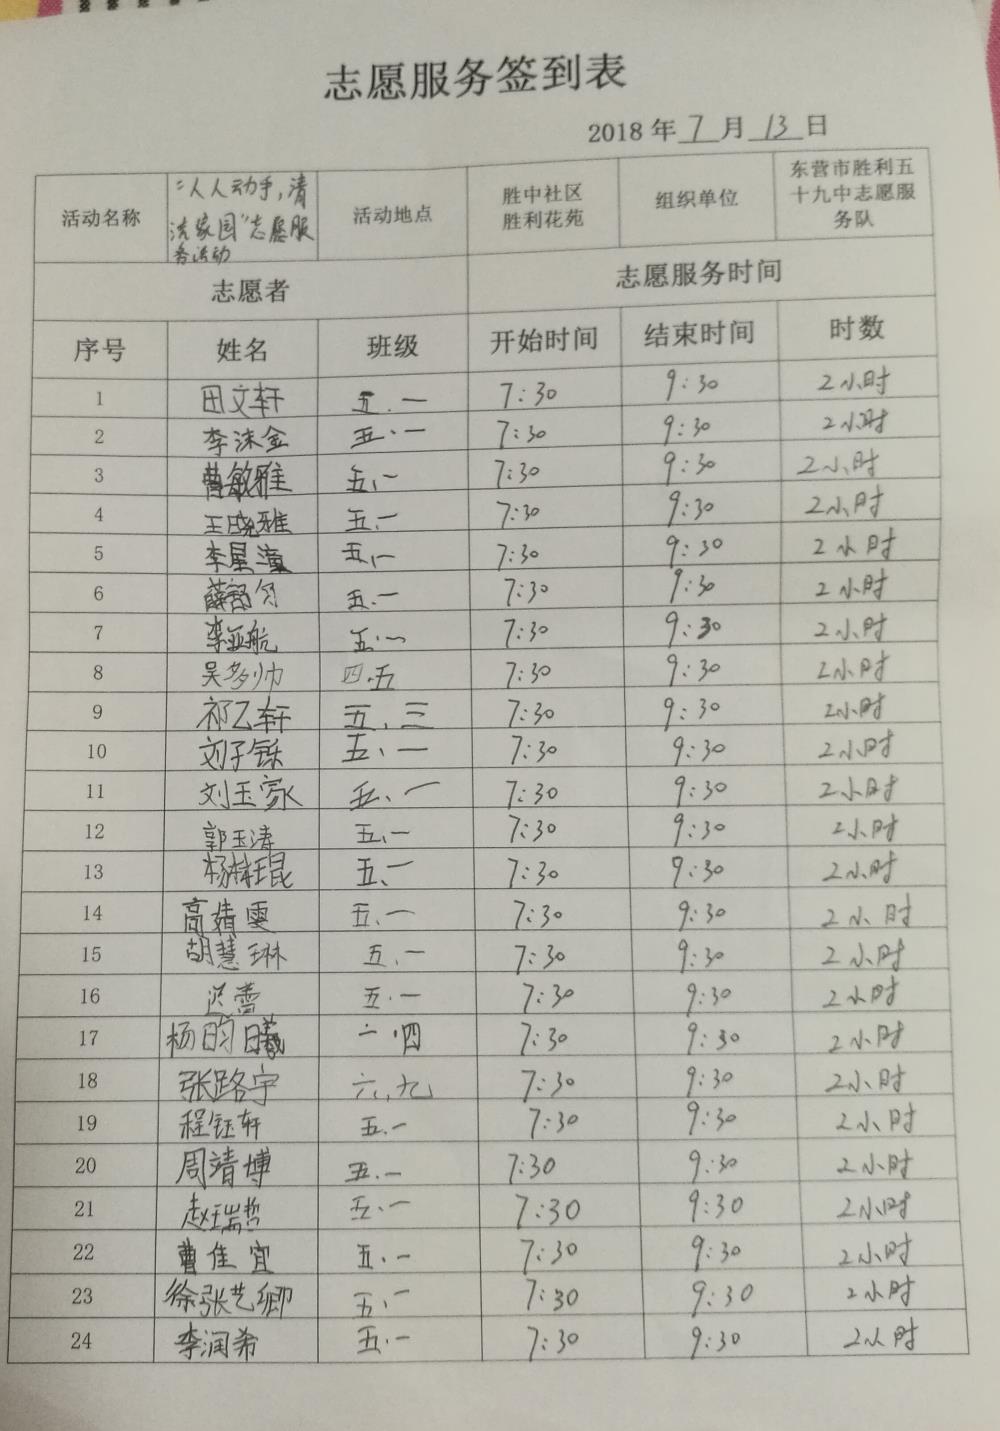 志愿服务签到表
2018 年 7 月 13 日
活动名称 “人人动手,清洁家园”志愿服务活动 活动地点 胜中社区胜利花苑 组织单位 东营市胜利五十九中志愿服务队
志愿者 志愿服务时间
序号 姓名 班级 开始时间 结束时间 时数
1 田文轩 五.一 7:30 9:30 2小时
2 李沫金 五.一 7:30 9:30 2小时
3 曹敏雅 五.一 7:30 9:30 2小时
4 王晓雅 五.一 7:30 9:30 2小时
5 李星 五.一 7:30 9:30 2小时
6 薛 五.一 7:30 9:30 2小时
7 李亚航 五.一 7:30 9:30 2小时
8 吴多帅 四.五 7:30 9:30 2小时
9 祁乙轩 五.三 7:30 9:30 2小时
10 刘子铄 五.一 7:30 9:30 2小时
11 刘玉家 五.一 7:30 9:30 2小时
12 郭玉涛 五.一 7:30 9:30 2小时
13 杨林琨 五.一 7:30 9:30 2小时
14 高靖雯 五.一 7:30 9:30 2小时
15 胡慧琳 五.一 7:30 9:30 2小时
16 迟蕾 五.一 7:30 9:30 2小时
17 杨昀曦 一.四 7:30 9:30 2小时
18 张路宇 六.九 7:30 9:30 2小时
19 程钰轩 五.一 7:30 9:30 2小时
20 周靖博 五.一 7:30 9:30 2小时
21 赵瑞哲 五.一 7:30 9:30 2小时
22 曹佳宜 五.一 7:30 9:30 2小时
23 徐张艺卿 五.一 7:30 9:30 2小时
24 李润希 五.一 7:30 9:30 2小时